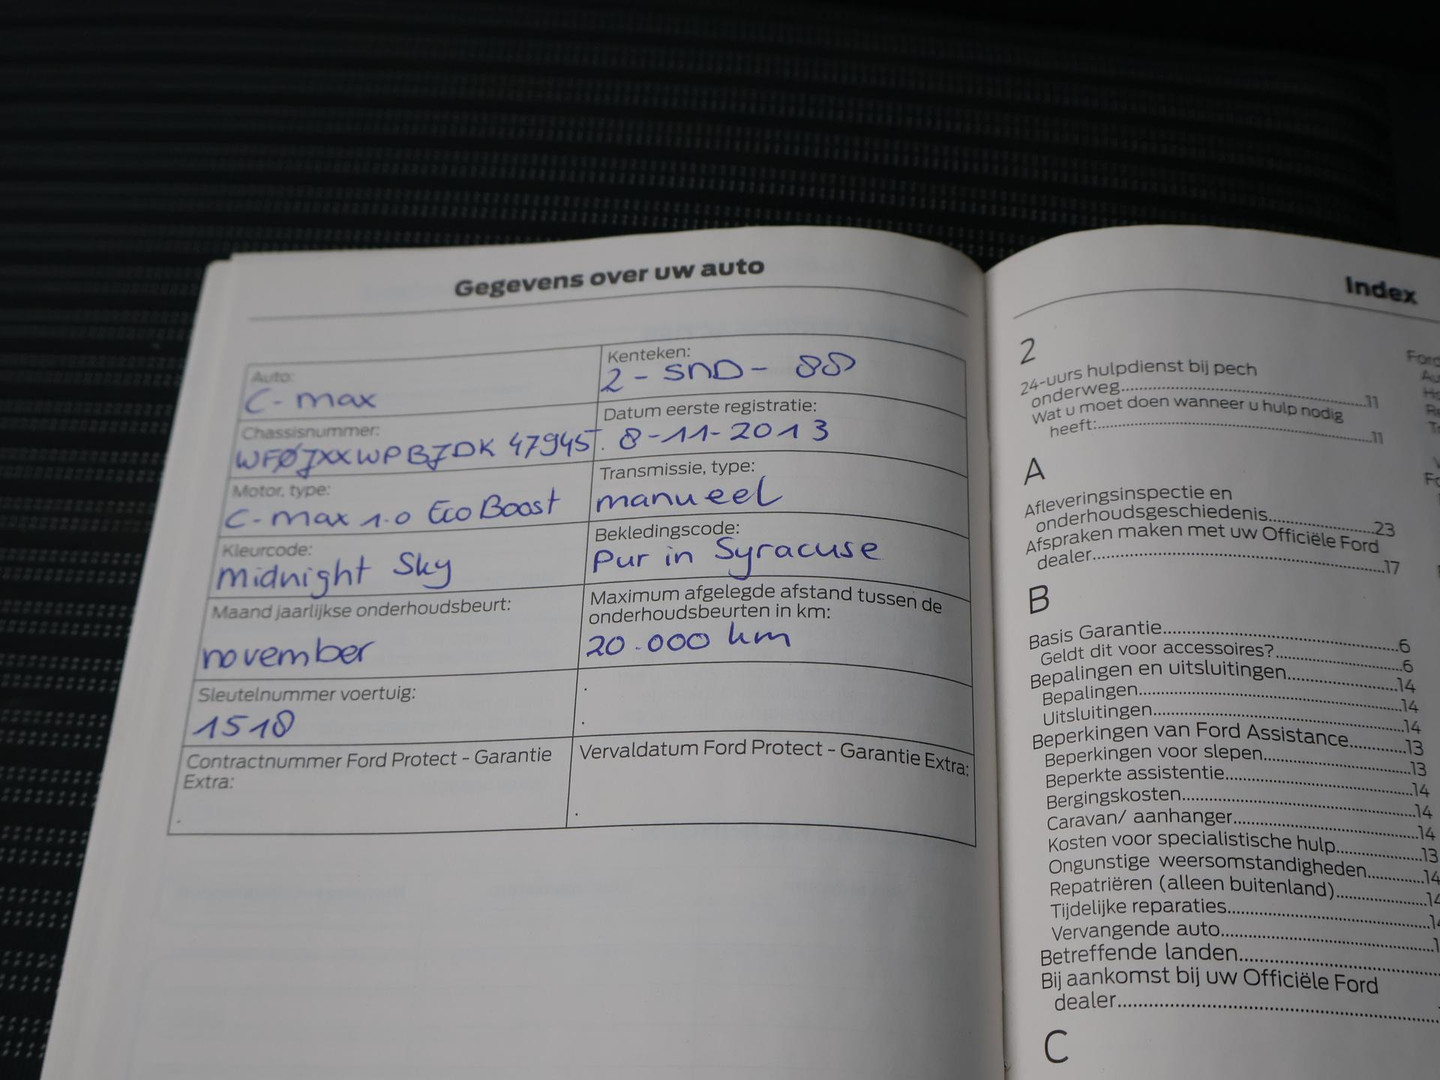 Gegevens over uw auto
Auto:
C-max
Kenteken:
2-SND-88
Chassisnummer:
WFØJXXWPBJDK47945
Datum eerste registratie:
8-11-2013
Motor, type:
C-max 1.0 EcoBoost
Transmissie, type:
manueel
Kleurcode:
Midnight Sky
Bekledingscode:
Pur in Syracuse
Maand jaarlijkse onderhoudsbeurt:
november
Maximum afgelegde afstand tussen de
onderhoudsbeurten in km:
20.000 km
Sleutelnummer voertuig:
1518
Contractnummer Ford Protect - Garantie
Extra:
Vervaldatum Ford Protect - Garantie Extra:
Index
2
24-uurs hulpdienst bij pech
onderweg..........11
Wat u moet doen wanneer u hulp nodig
heeft:..........11
A
Afleveringsinspectie en
onderhoudsgeschiedenis..........23
Afspraken maken met uw Officiële Ford
dealer..........17
B
Basis Garantie..........6
Geldt dit voor accessoires?..........6
Bepalingen en uitsluitingen..........14
Bepalingen..........14
Uitsluitingen..........14
Beperkingen van Ford Assistance..........13
Beperkingen voor slepen..........13
Beperkte assistentie..........14
Bergingskosten..........14
Caravan/ aanhanger..........14
Kosten voor specialistische hulp..........13
Ongunstige weersomstandigheden..........14
Repatriëren (alleen buitenland)..........14
Tijdelijke reparaties..........
Vervangende auto..........
Betreffende landen..........
Bij aankomst bij uw Officiële Ford
dealer..........
C